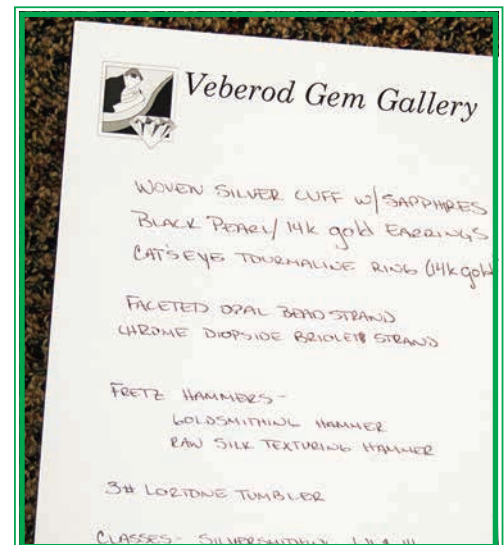 Veberod Gem Gallery
WOVEN SILVER CUFF W/ SAPPHIRES
BLACK PEARL/ 14k gold EARRINGS
CAT'S EYE TOURMALINE RING (14k gold
FACETED OPAL BEAD STRAND
CHROME DIOPSIDE BRIOLETTE STRAND
FRETZ HAMMERS-
GOLDSMITHING HAMMER
RAW SILK TEXTURING HAMMER
3# LORTONE TUMBLER
CLASSES- SILVERSMITHING